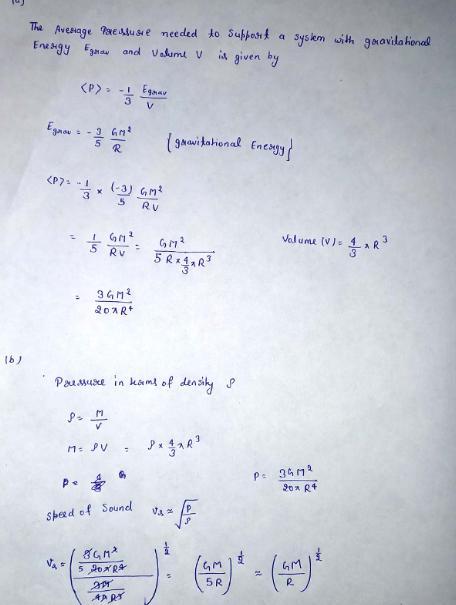 (a)
The Average Pressure needed to Support a system with gravitational
Energy Egrav and Volume V is given by
<P> = -1/3 Egrav/V
Egrav = -3/5 GM²/R {gravitational Energy}
<P> = -1/3 × (-3)/5 GM²/RV
= 1/5 GM²/RV = GM²/(5R × 4/3 πR³) Volume (V) = 4/3 πR³
= 3GM²/20πR⁴
(b)
Pressure in terms of density ρ
ρ = M/V
M = ρV = ρ × 4/3 πR³
P = P = 3GM²/20πR⁴
Speed of Sound Vs = √(P/ρ)
Vs = (3GM²/5 20πR⁴ / 3M/4πR³)^1/2 = (GM/5R)^1/2 ≈ (GM/R)^1/2